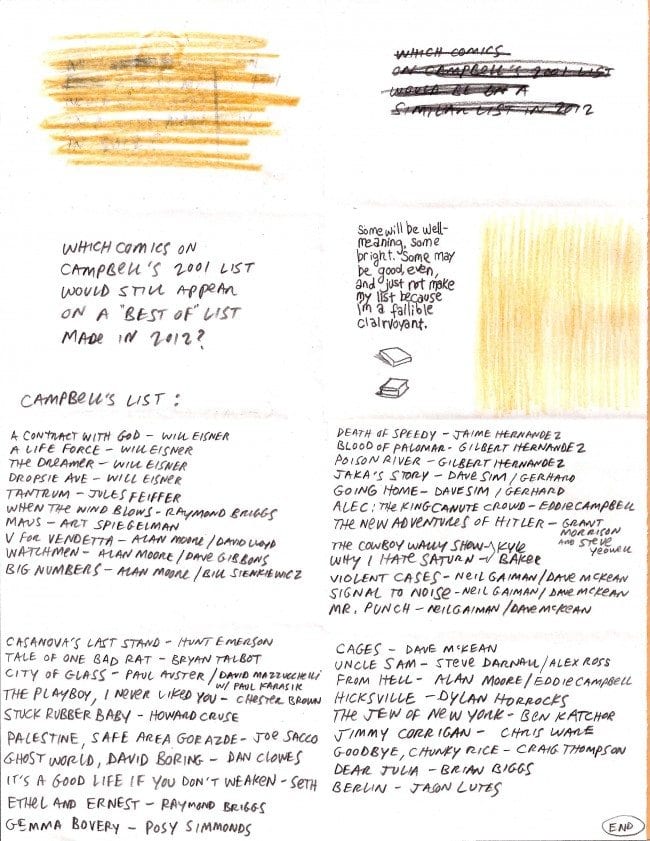 WHICH COMICS
ON CAMPBELL'S 2001 LIST
WOULD BE ON A
SIMILAR LIST IN 2012
WHICH COMICS ON
CAMPBELL'S 2001 LIST
WOULD STILL APPEAR
ON A "BEST OF" LIST
MADE IN 2012?
Some will be well-
meaning, some
bright. Some may
be good, even,
and just not make
my list because
I'm a fallible
clairvoyant.
CAMPBELL'S LIST :
A CONTRACT WITH GOD - WILL EISNER
A LIFE FORCE - WILL EISNER
THE DREAMER - WILL EISNER
DROPSIE AVE - WILL EISNER
TANTRUM - JULES FEIFFER
WHEN THE WIND BLOWS - RAYMOND BRIGGS
MAUS - ART SPIEGELMAN
V FOR VENDETTA - ALAN MOORE/DAVID LLOYD
WATCHMEN - ALAN MOORE/DAVE GIBBONS
BIG NUMBERS - ALAN MOORE/BILL SIENKIEWICZ
DEATH OF SPEEDY - JAIME HERNANDEZ
BLOOD OF PALOMAR - GILBERT HERNANDEZ
POISON RIVER - GILBERT HERNANDEZ
JAKA'S STORY - DAVE SIM / GERHARD
GOING HOME - DAVE SIM / GERHARD
ALEC: THE KING CANUTE CROWD - EDDIE CAMPBELL
THE NEW ADVENTURES OF HITLER - GRANT
MORRISON
AND STEVE
YEOWELL
THE COWBOY WALLY SHOW - KYLE
WHY I HATE SATURN - BAKER
VIOLENT CASES - NEIL GAIMAN/DAVE MCKEAN
SIGNAL TO NOISE - NEIL GAIMAN/DAVE MCKEAN
MR. PUNCH - NEIL GAIMAN/DAVE MCKEAN
CASANOVA'S LAST STAND - HUNT EMERSON
TALE OF ONE BAD RAT - BRYAN TALBOT
CITY OF GLASS - PAUL AUSTER / DAVID MAZZUCHELLI
W/ PAUL KARASIK
THE PLAYBOY, I NEVER LIKED YOU - CHESTER BROWN
STUCK RUBBER BABY - HOWARD CRUSE
PALESTINE, SAFE AREA GORAZDE - JOE SACCO
GHOST WORLD, DAVID BORING - DAN CLOWES
IT'S A GOOD LIFE IF YOU DON'T WEAKEN - SETH
ETHEL AND ERNEST - RAYMOND BRIGGS
GEMMA BOVERY - POSY SIMMONDS
CAGES - DAVE MCKEAN
UNCLE SAM - STEVE DARNALL/ALEX ROSS
FROM HELL - ALAN MOORE/EDDIE CAMPBELL
HICKSVILLE - DYLAN HORROCKS
THE JEW OF NEW YORK - BEN KATCHOR
JIMMY CORRIGAN - CHRIS WARE
GOODBYE, CHUNKY RICE - CRAIG THOMPSON
DEAR JULIA - BRIAN BIGGS
BERLIN - JASON LUTES
END